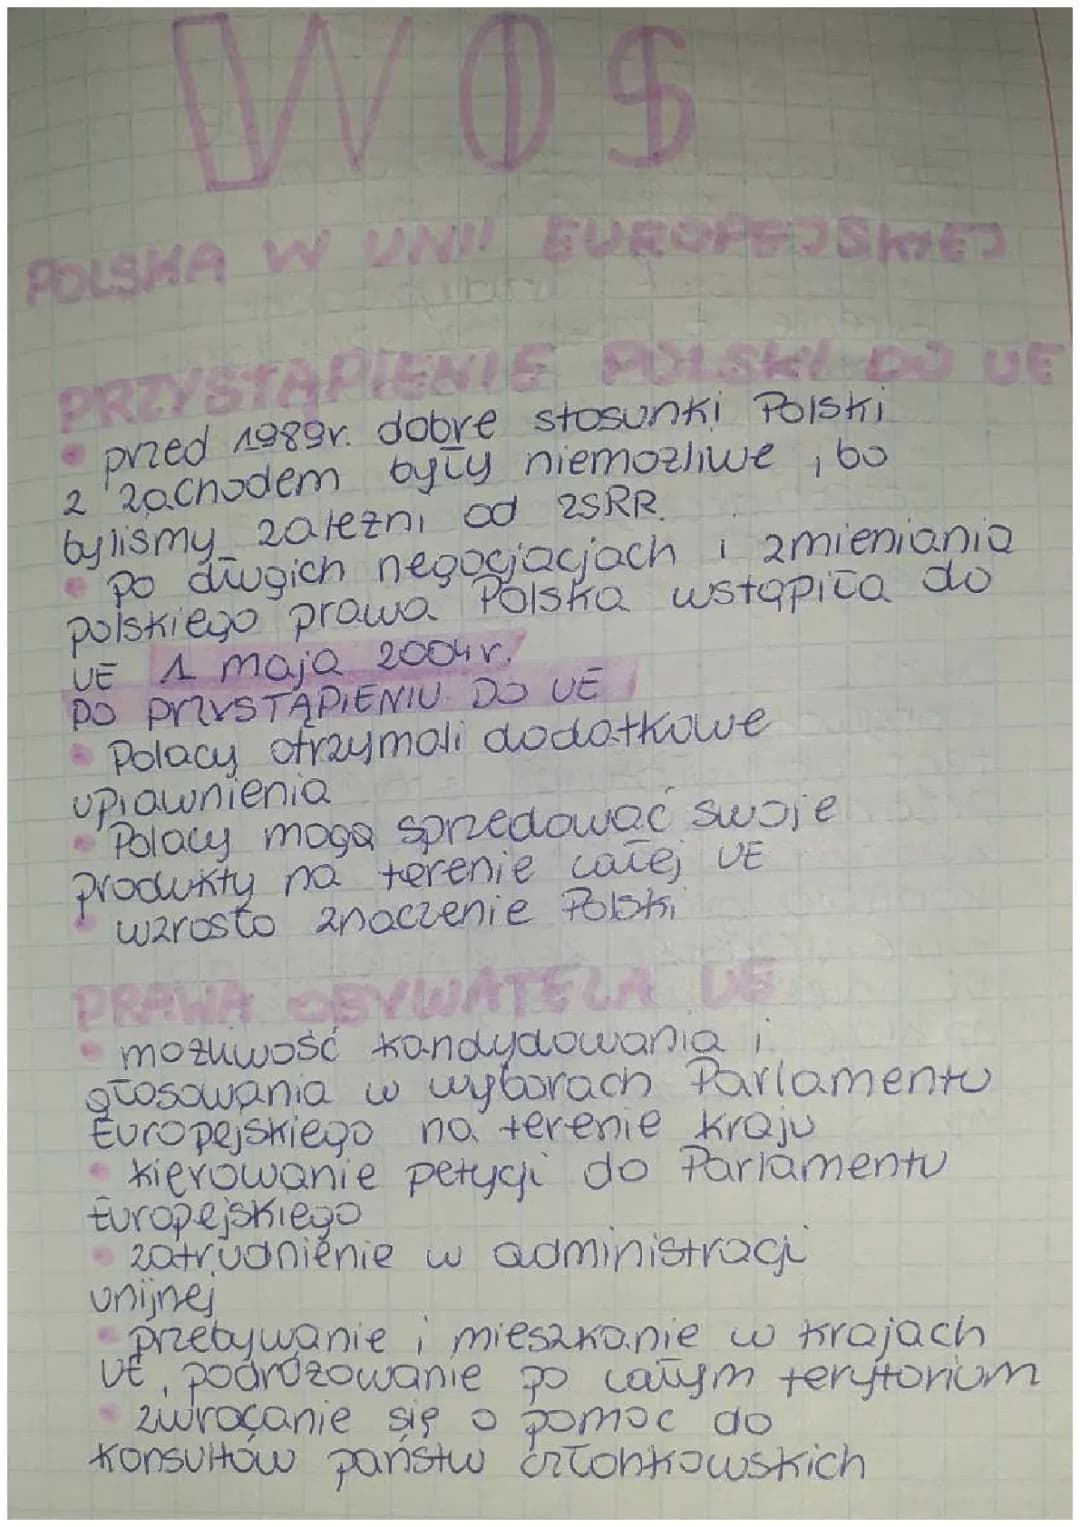 WOS
POLSKA W UNII EUROPEJSKIEJ
PRZYSTĄPIENIE POLSKI DO UE
• przed 1989r. dobre stosunki Polski
z zachodem były niemożliwe, bo
byliśmy zależni od ZSRR.
• po długich negocjacjach i zmieniania
polskiego prawa Polska wstąpiła do
UE 1 maja 2004r.
PO PRZYSTĄPIENIU DO UE
• Polacy otrzymali dodatkowe
uprawnienia
• Polacy mogą sprzedawać swoje
produkty na terenie całej UE
• wzrosło znaczenie Polski
PRAWA OBYWATELA UE
• możliwość kandydowania i
głosowania w wyborach Parlamentu
Europejskiego na terenie kraju
• kierowanie petycji do Parlamentu
Europejskiego
• zatrudnienie w administracji
unijnej
• przebywanie i mieszkanie w krajach
UE, podróżowanie po całym terytorium
• zwracanie się o pomoc do
konsultów państw członkowskich